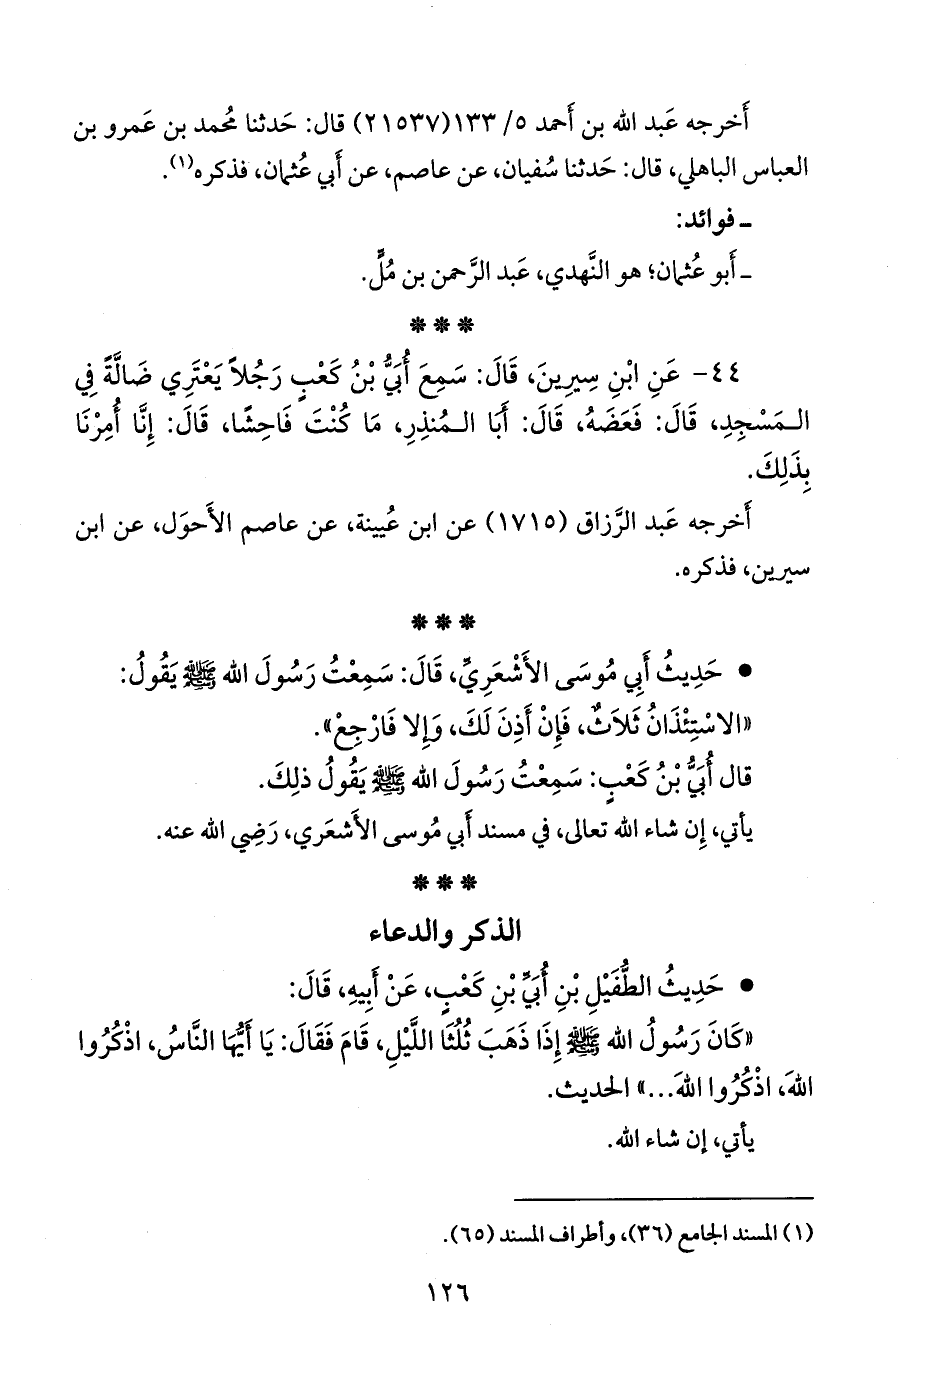 أَخرجه عَبد الله بن أَحمد ٥/ ١٣٣ (٢١٥٣٧) قال: حَدثنا مُحمد بن عَمرو بن
العباس الباهلي، قال: حَدثنا سُفيان، عن عاصم، عن أَبي عُثمان، فذكره(١).
ـ فوائد:
ـ أَبو عُثمان؛ هو النَّهدي، عَبد الرَّحمن بن مُلٍّ.
* * *
٤٤- عَنِ ابْنِ سِيرِينَ، قَالَ: سَمِعَ أُبَيُّ بْنُ كَعْبٍ رَجُلاً يَعْتَرِي ضَالَّةً فِي
الـمَسْجِدِ، قَالَ: فَعَضَهُ، قَالَ: أَبَا الـمُنذِرِ، مَا كُنْتَ فَاحِشًا، قَالَ: إِنَّا أُمِرْنَا
بِذَلِكَ.
أَخرجه عَبد الرَّزاق (١٧١٥) عن ابن عُيينة، عن عاصم الأَحوَل، عن ابن
سيرين، فذكره.
* * *
• حَدِيثُ أَبِي مُوسَى الأَشْعَرِيِّ، قَالَ: سَمِعْتُ رَسُولَ الله ﷺ يَقُولُ:
«الاسْتِئْذَانُ ثَلاَثٌ، فَإِنْ أَذِنَ لَكَ، وَإِلا فَارْجِعْ».
قال أُبَيُّ بْنُ كَعْبٍ: سَمِعْتُ رَسُولَ الله ﷺ يَقُولُ ذلِكَ.
يأتي، إِن شاء الله تعالى، في مسند أَبي مُوسى الأَشعَري، رَضِي الله عنه.
* * *
الذكر والدعاء
• حَدِيثُ الطُّفَيْلِ بْنِ أُبَيِّ بْنِ كَعْبٍ، عَنْ أَبِيهِ، قَالَ:
«كَانَ رَسُولُ الله ﷺ إِذَا ذَهَبَ ثُلُثَا اللَّيْلِ، قَامَ فَقَالَ: يَا أَيُّهَا النَّاسُ، اذْكُرُوا
اللهَ، اذْكُرُوا اللهَ...» الحديث.
يأتي، إن شاء الله.
(١) المسند الجامع (٣٦)، وأطراف المسند (٦٥).
١٢٦